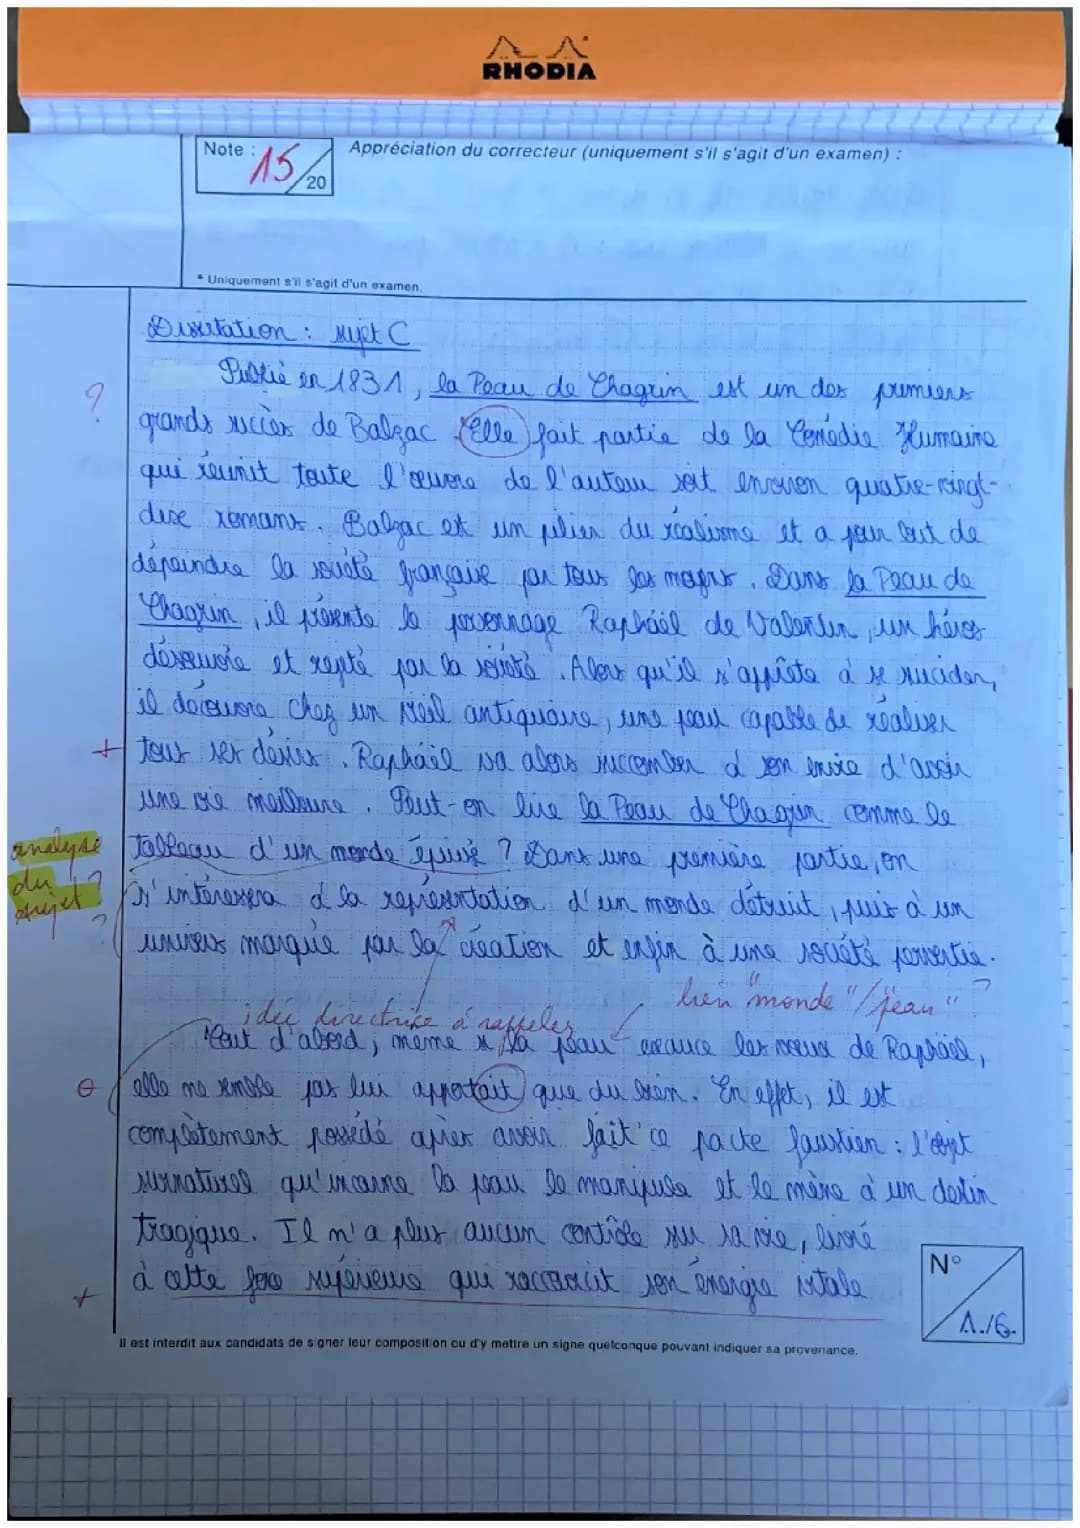 RHODIA
Note : 15/20
Appréciation du correcteur (uniquement s'il s'agit d'un examen) :
* Uniquement s'il s'agit d'un examen.
Dissertation : sujet C
Publié en 1831, la Peau de Chagrin est un des premiers
?
grands succès de Balzac. Elle fait partie de la Comédie Humaine
qui réunit toute l'œuvre de l'auteur soit environ quatre-vingt-
dize romans. Balzac est un pilier du réalisme et a pour but de
dépeindre la société française par tous les moyens. Dans la Peau de
Chagrin, il présente le personnage Raphaël de Valentin, un héros
désœuvré et rejeté par la société. Alors qu'il s'apprête à se suicider,
il découvre chez un vieil antiquaire, une peau capable de réaliser
+ tous ses désirs. Raphaël va alors succomber à son envie d'avoir
une vie meilleure. Peut-on lire la Peau de Chagrin comme le
analyse du sujet ?
tableau d'un monde épuisé ? Dans une première partie, on
s'intéressera à la représentation d'un monde détruit, puis à un
?
univers marqué par la création et enfin à une société pervertie.
lien "monde"/"peau" ?
idée directrice à rappeler
Tout d'abord, même si la peau exauce les vœux de Raphaël,
elle ne semble pas lui apportait que du bien. En effet, il est
complètement possédé après avoir fait ce pacte faustien : l'objet
surnaturel qu'incarne la peau le manipule et le mène à un destin
tragique. Il n'a plus aucun contrôle sur sa vie, livré
+ à cette force supérieure qui raccourcit son énergie vitale
N°
1./6.
Il est interdit aux candidats de signer leur composition ou d'y mettre un signe quelconque pouvant indiquer sa provenance.